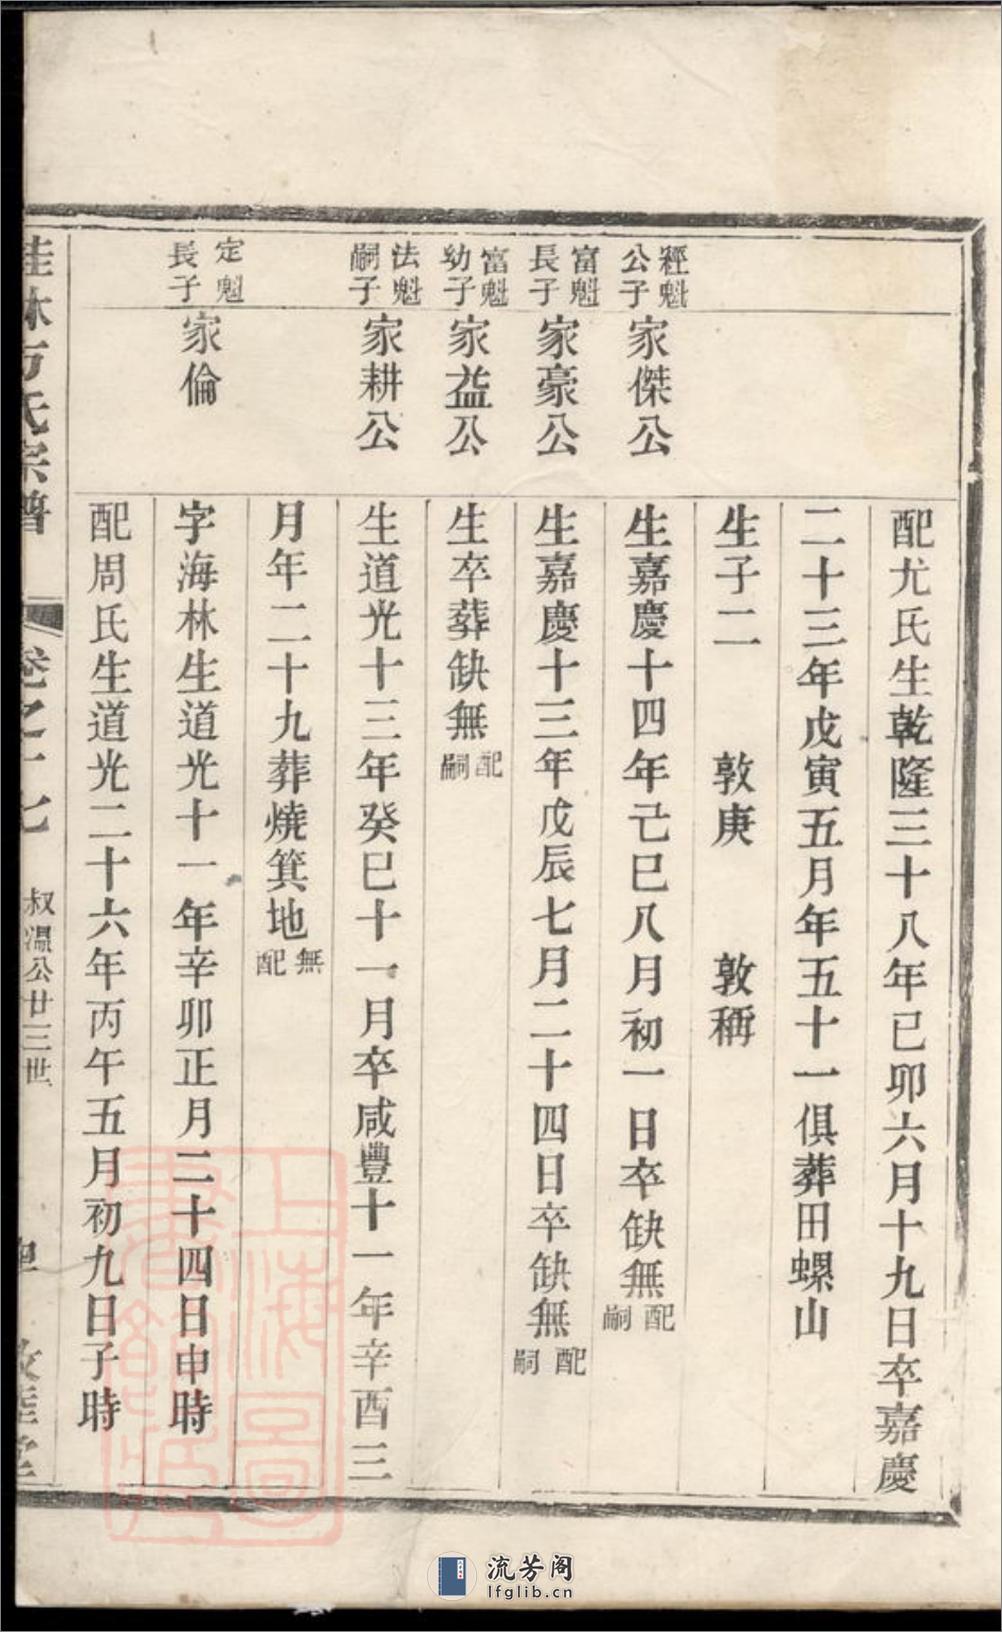 配尤氏生乾隆三十八年已卯六月十九日卒嘉慶
二十三年戊寅五月年五十一俱葬田螺山
生子二 敦庚 敦稱
經魁公子 家傑公 生嘉慶十四年己巳八月初一日卒缺無配嗣
富魁長子 家豪公 生嘉慶十三年戊辰七月二十四日卒缺無配嗣
富魁幼子 家益公 生卒葬缺無配嗣
法魁嗣子 家耕公 生道光十三年癸巳十一月卒咸豐十一年辛酉三
月年二十九葬燒箕地無配
定魁長子 家倫 字海林生道光十一年辛卯正月二十四日申時
配周氏生道光二十六年丙午五月初九日子時
桂林方氏宗譜 卷之十七 叔 公廿三世
上海圖書館藏
流芳阁
lfglib.cn